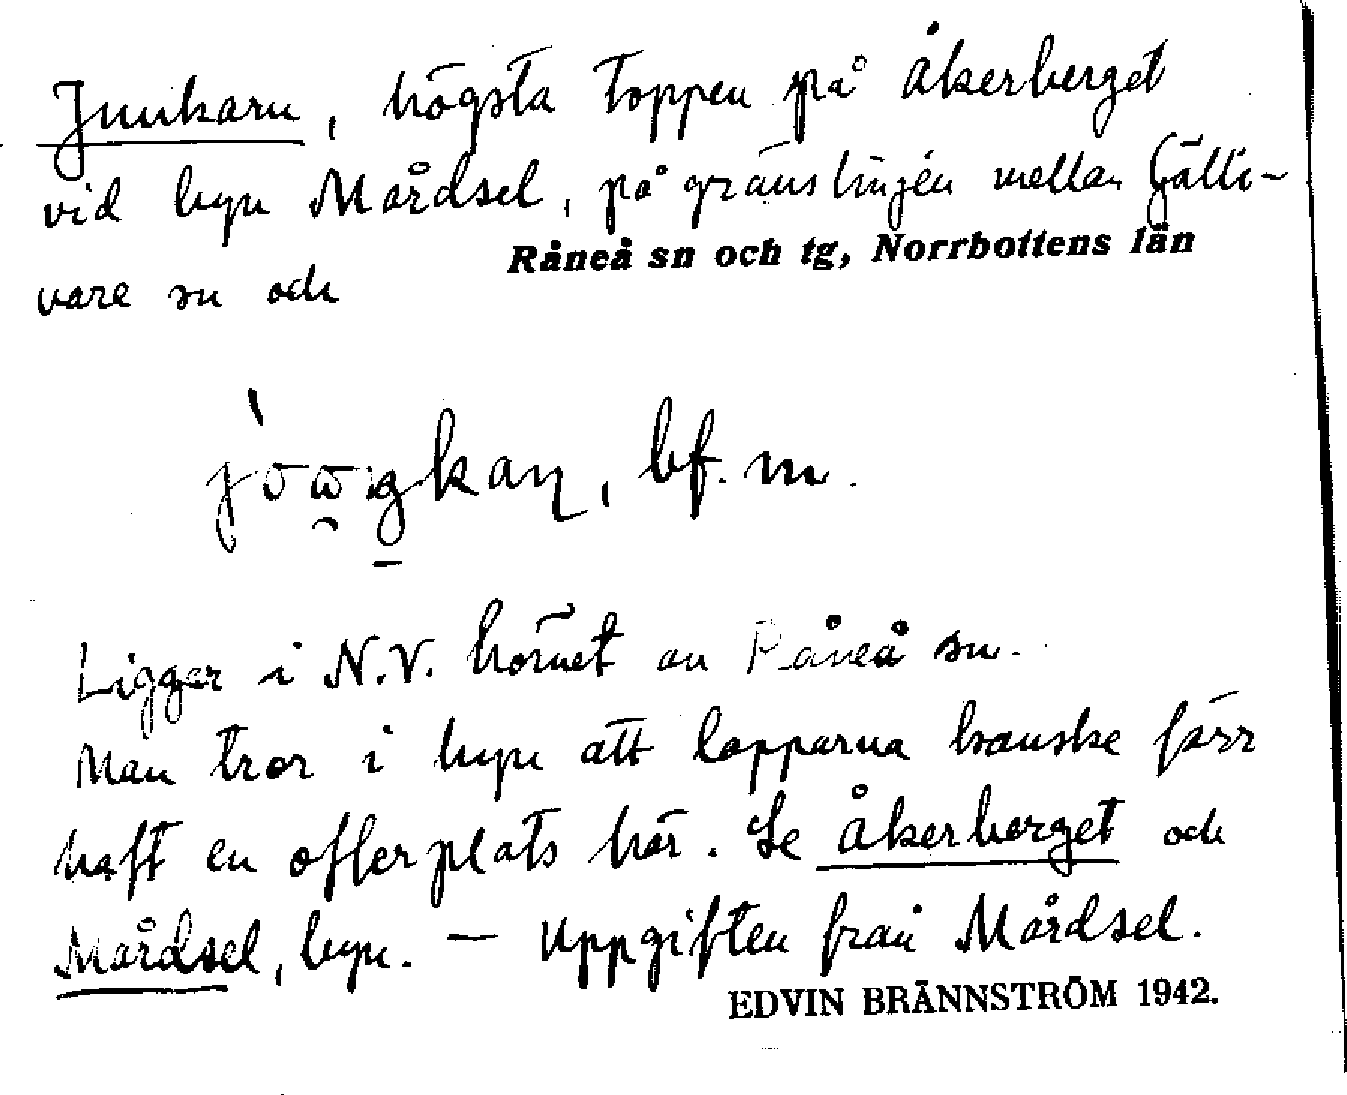 Junkarn, högsta toppen på Åkerberget
vid byn Mårdsel, på gränslinjen mellan Gälli-
vare sn och Råneå sn och tg, Norrbottens län
bf. m.
Ligger i N.V. hörnet av Råneå sn.
Man tror i byn att lapparna kanske förr
haft en offerplats här. Se Åkerberget och
Mårdsel, byn. — Uppgiften från Mårdsel.
EDVIN BRÄNNSTRÖM 1942.